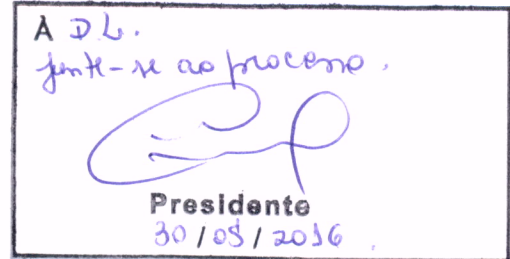 A D L.
junte-se ao processo.
Presidente
30/05/2016